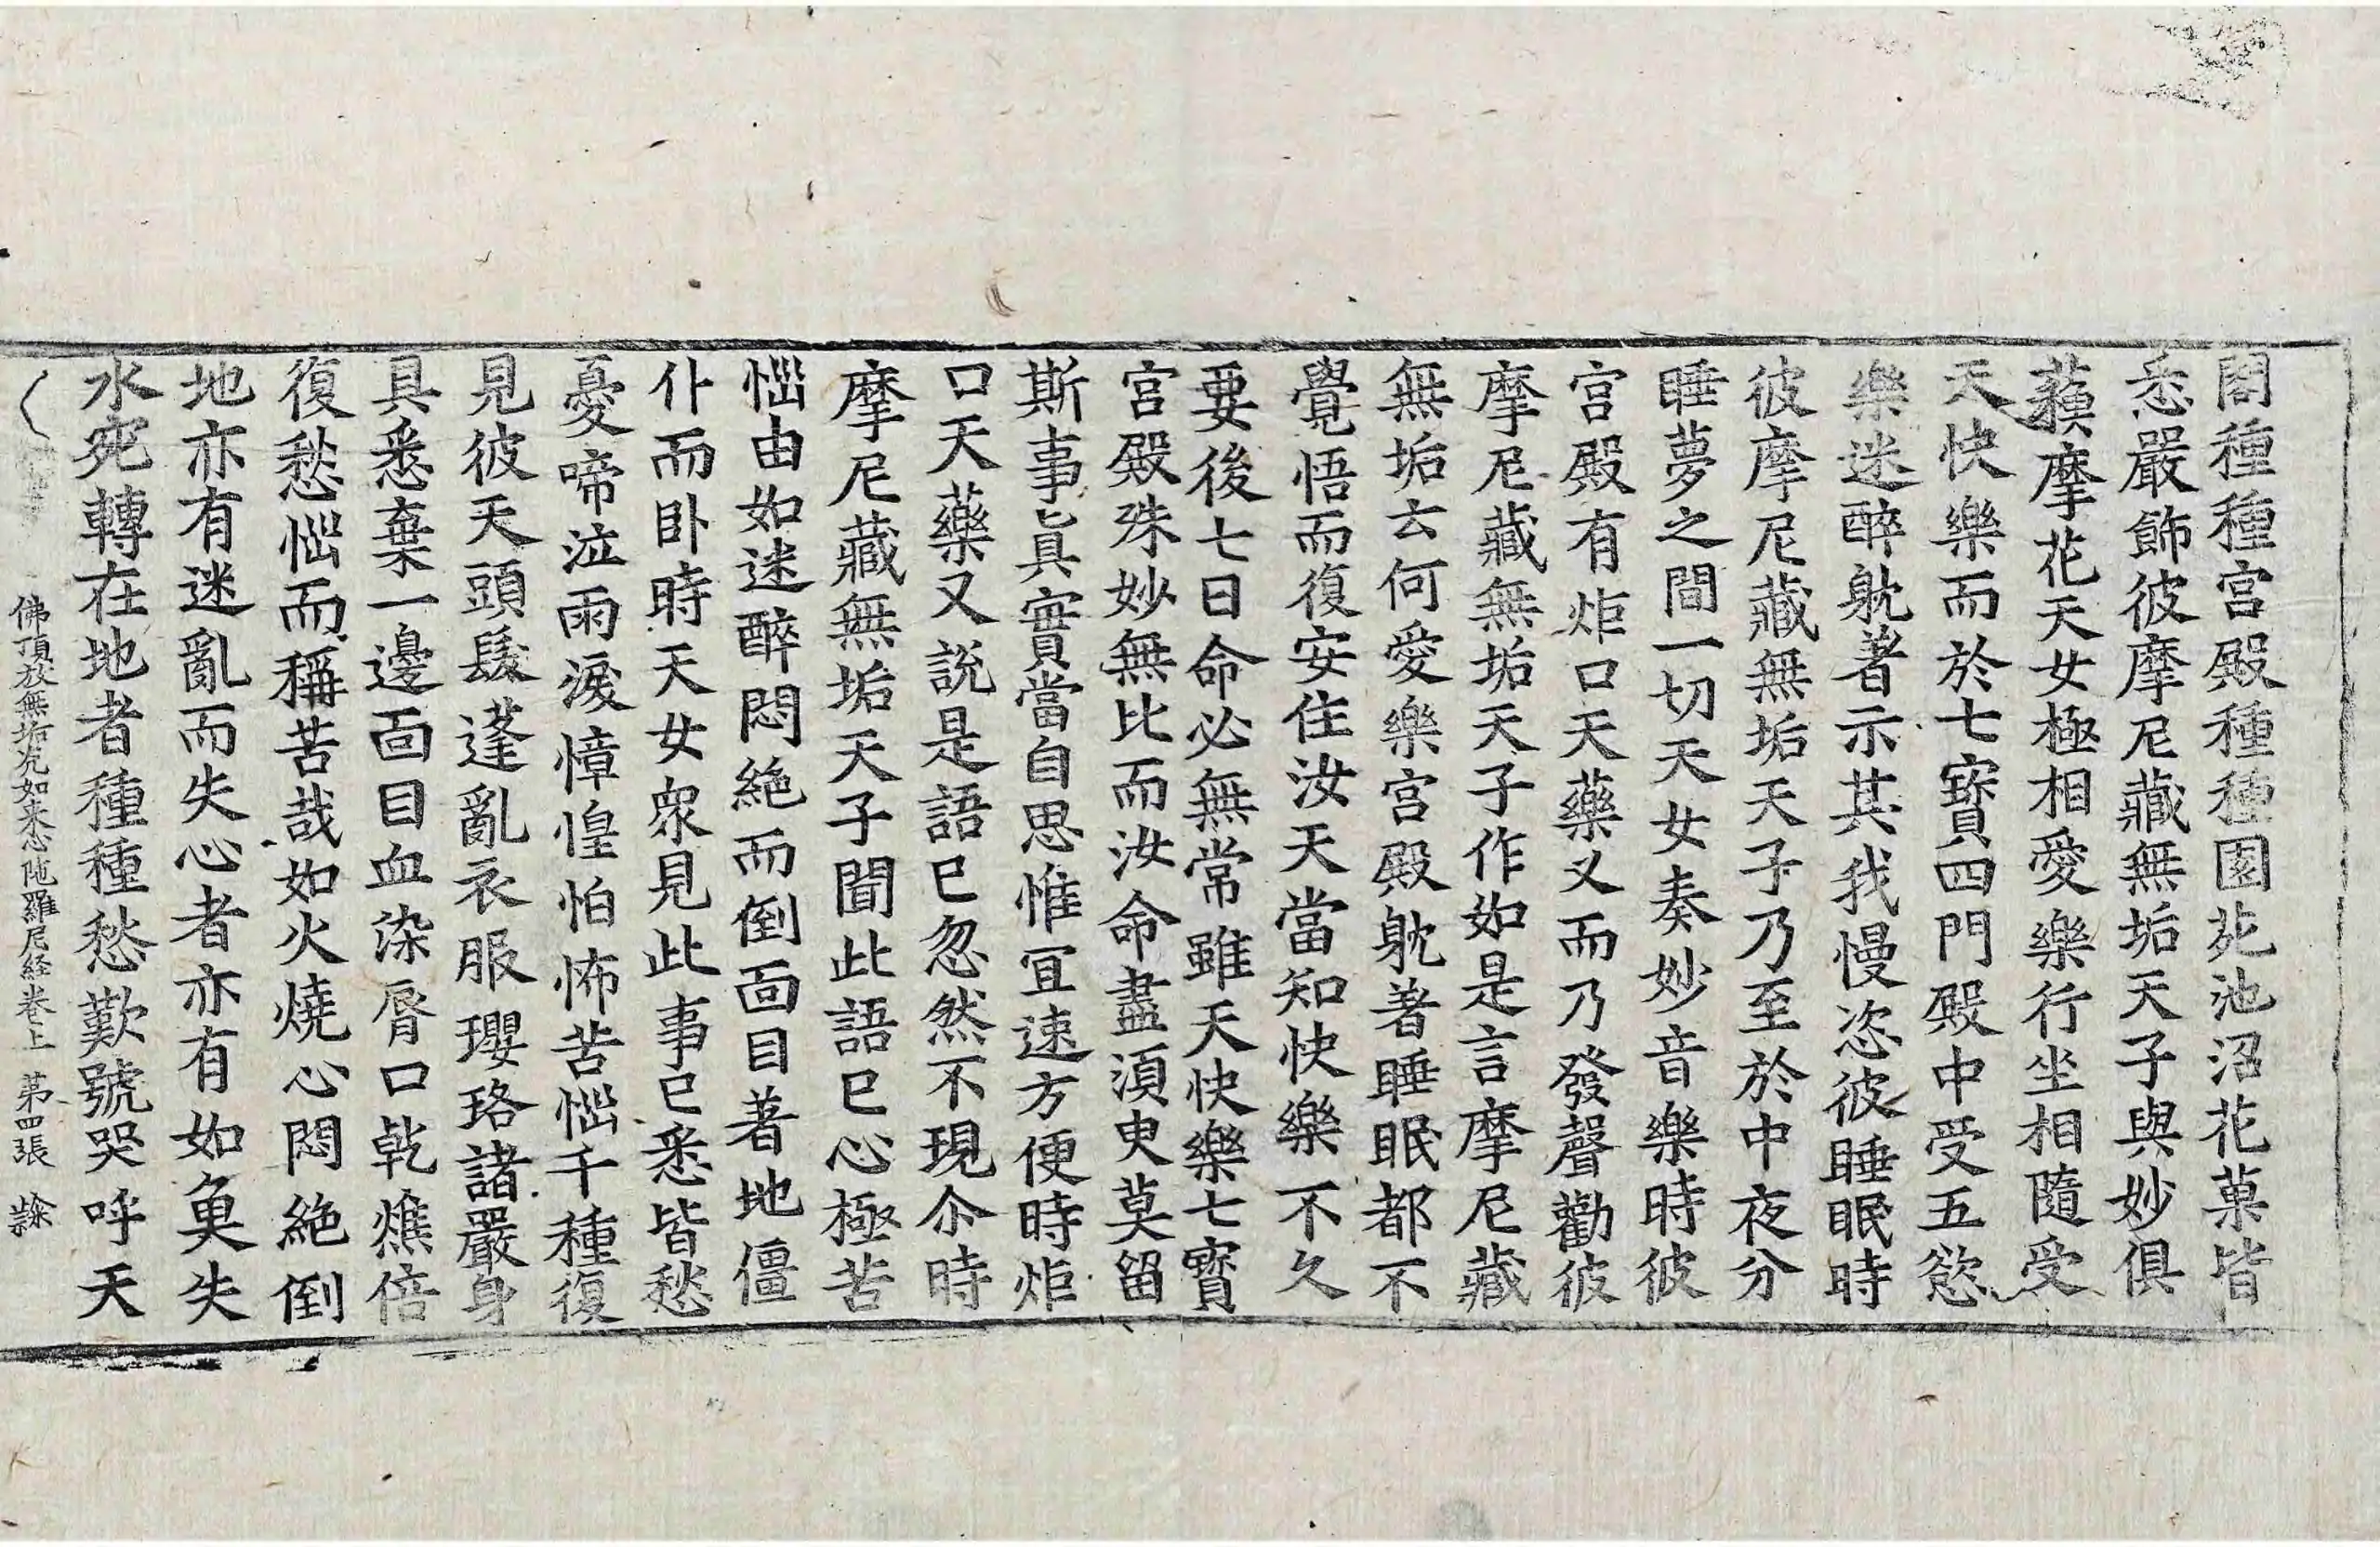 閣種種宮殿種種園苑池沼花菓皆
悉嚴飾彼摩尼藏無垢天子與妙俱
蘓摩花天女極相愛樂行坐相隨受
天快樂而於七寶四門殿中受五慾
樂迷醉躭著示其我慢恣彼睡眠時
彼摩尼藏無垢天子乃至於中夜分
睡夢之間一切天女奏妙音樂時彼
宮殿有炬口天藥叉而乃發聲勸彼
摩尼藏無垢天子作如是言摩尼藏
無垢云何愛樂宮殿躭著睡眠都不
覺悟而復安住汝天當知快樂不久
要後七日命必無常雖天快樂七寶
宮殿殊妙無比而汝命盡湏臾莫留
斯事真實當自思惟冝速方便時炬
口天藥叉說是語已忽然不現尒時
摩尼藏無垢天子聞此語已心極苦
惱由如迷醉悶絕而倒面目著地僵
仆而卧時天女衆見此事已悉皆愁
憂啼泣雨淚慞惶怕怖苦惱千種復
見彼天頭髮蓬亂衣服瓔珞諸嚴身
具悉棄一邊面目血染脣口乾燋倍
復愁惱而稱苦哉如火燒心悶絕倒
地亦有迷亂而失心者亦有如魚失
水宛轉在地者種種愁歎號哭呼天
佛頂放無垢光如来心陁羅尼経卷上 苐四張